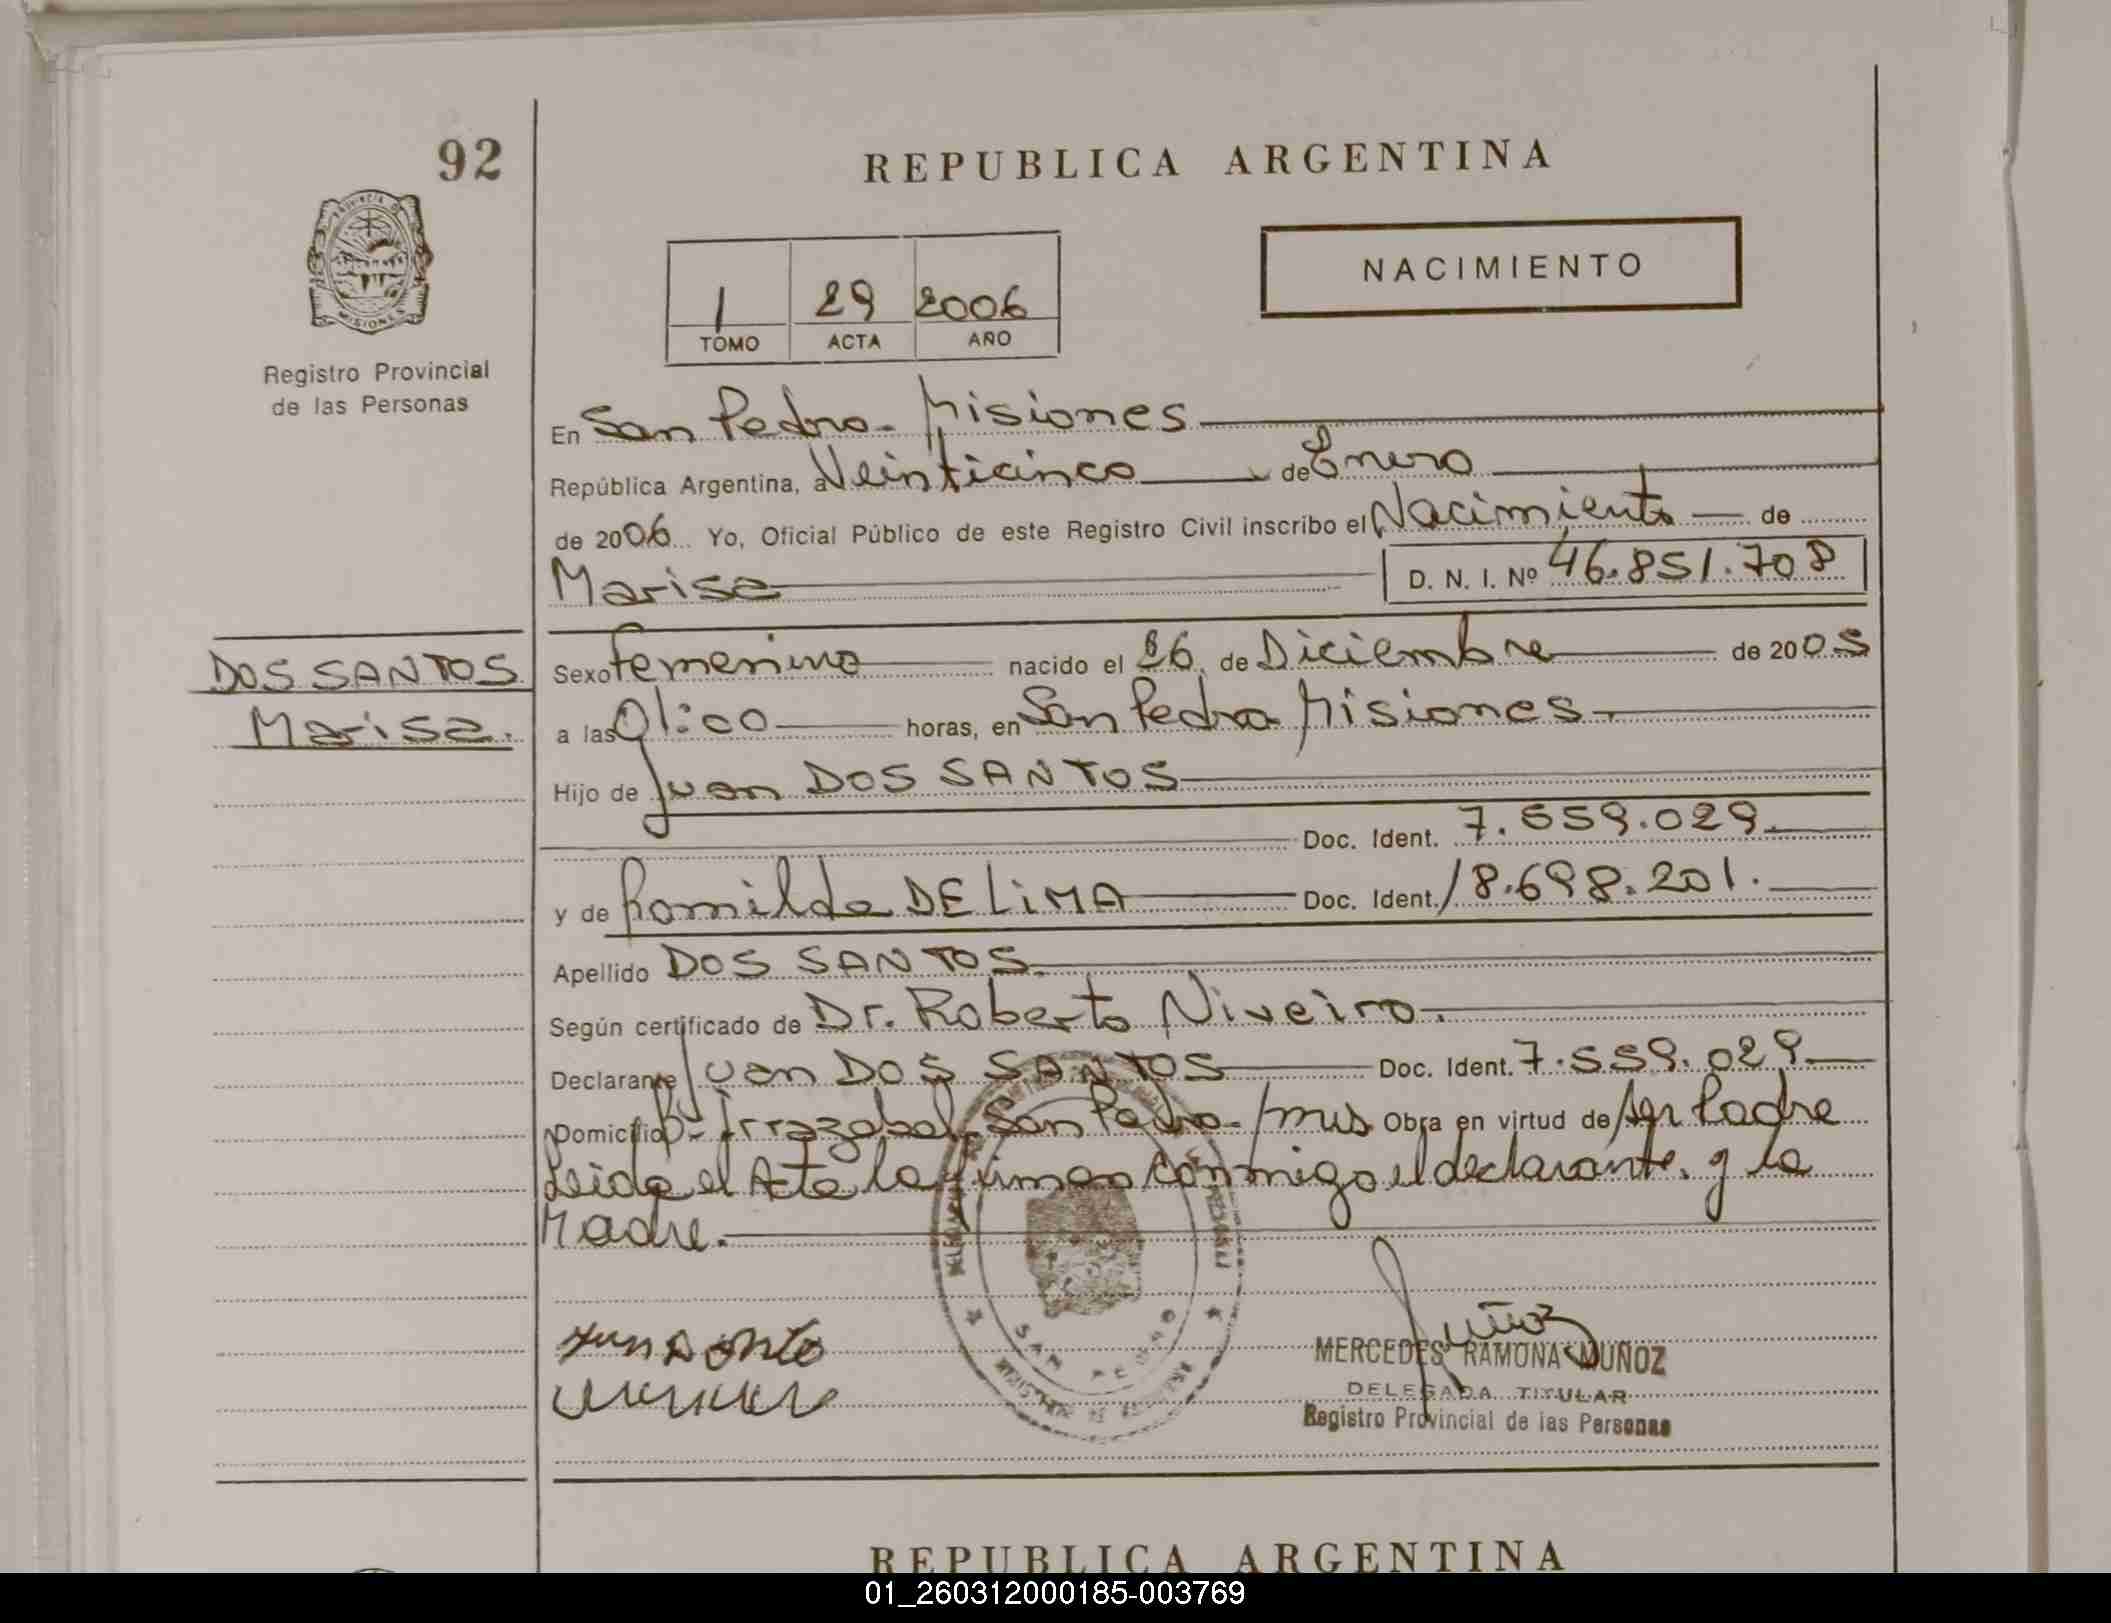 92
REPUBLICA ARGENTINA
PROVINCIA DE
MISIONES
Registro Provincial
de las Personas
1 29 2006
TOMO ACTA AÑO
NACIMIENTO
En San Pedro - Misiones
República Argentina, a Veinticinco de Enero
de 2006 Yo, Oficial Público de este Registro Civil inscribo el Nacimiento de
Marisa D. N. I. Nº 46.851.708
DOS SANTOS
Marisa.
Sexo femenino nacido el 26 de Diciembre de 2005
a las 01:00 horas, en San Pedro Misiones
Hijo de Juan DOS SANTOS
Doc. Ident. 7.559.029
y de Romilda DE LIMA Doc. Ident. 18.698.201.
Apellido DOS SANTOS
Según certificado de Dr. Roberto Niveiro
Declarante Juan DOS SANTOS Doc. Ident. 7.559.029
Domicilio Irrazabal San Pedro - Mis Obra en virtud de ser Padre
Leida el Acta la firman conmigo el declarante y la
Madre.
SAN PEDRO
Muñoz
MERCEDES RAMONA MUÑOZ
DELEGADA TITULAR
Registro Provincial de las Personas
REPUBLICA ARGENTINA
01_260312000185-003769